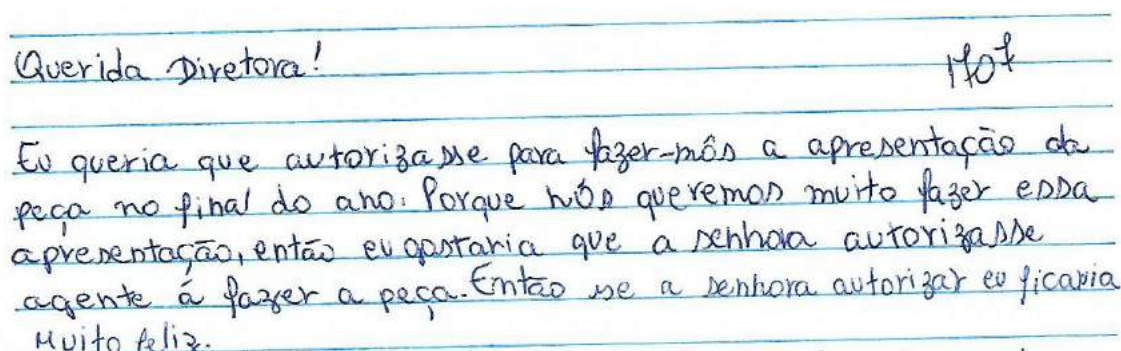 Querida Diretora!
1707
Eu queria que autorizasse para fazer-mós a apresentação da
peça no final do ano. Porque nós queremos muito fazer essa
apresentação, então eu gostaria que a senhora autorizasse
agente á fazer a peça. Então se a senhora autorizar eu ficaria
Muito feliz.